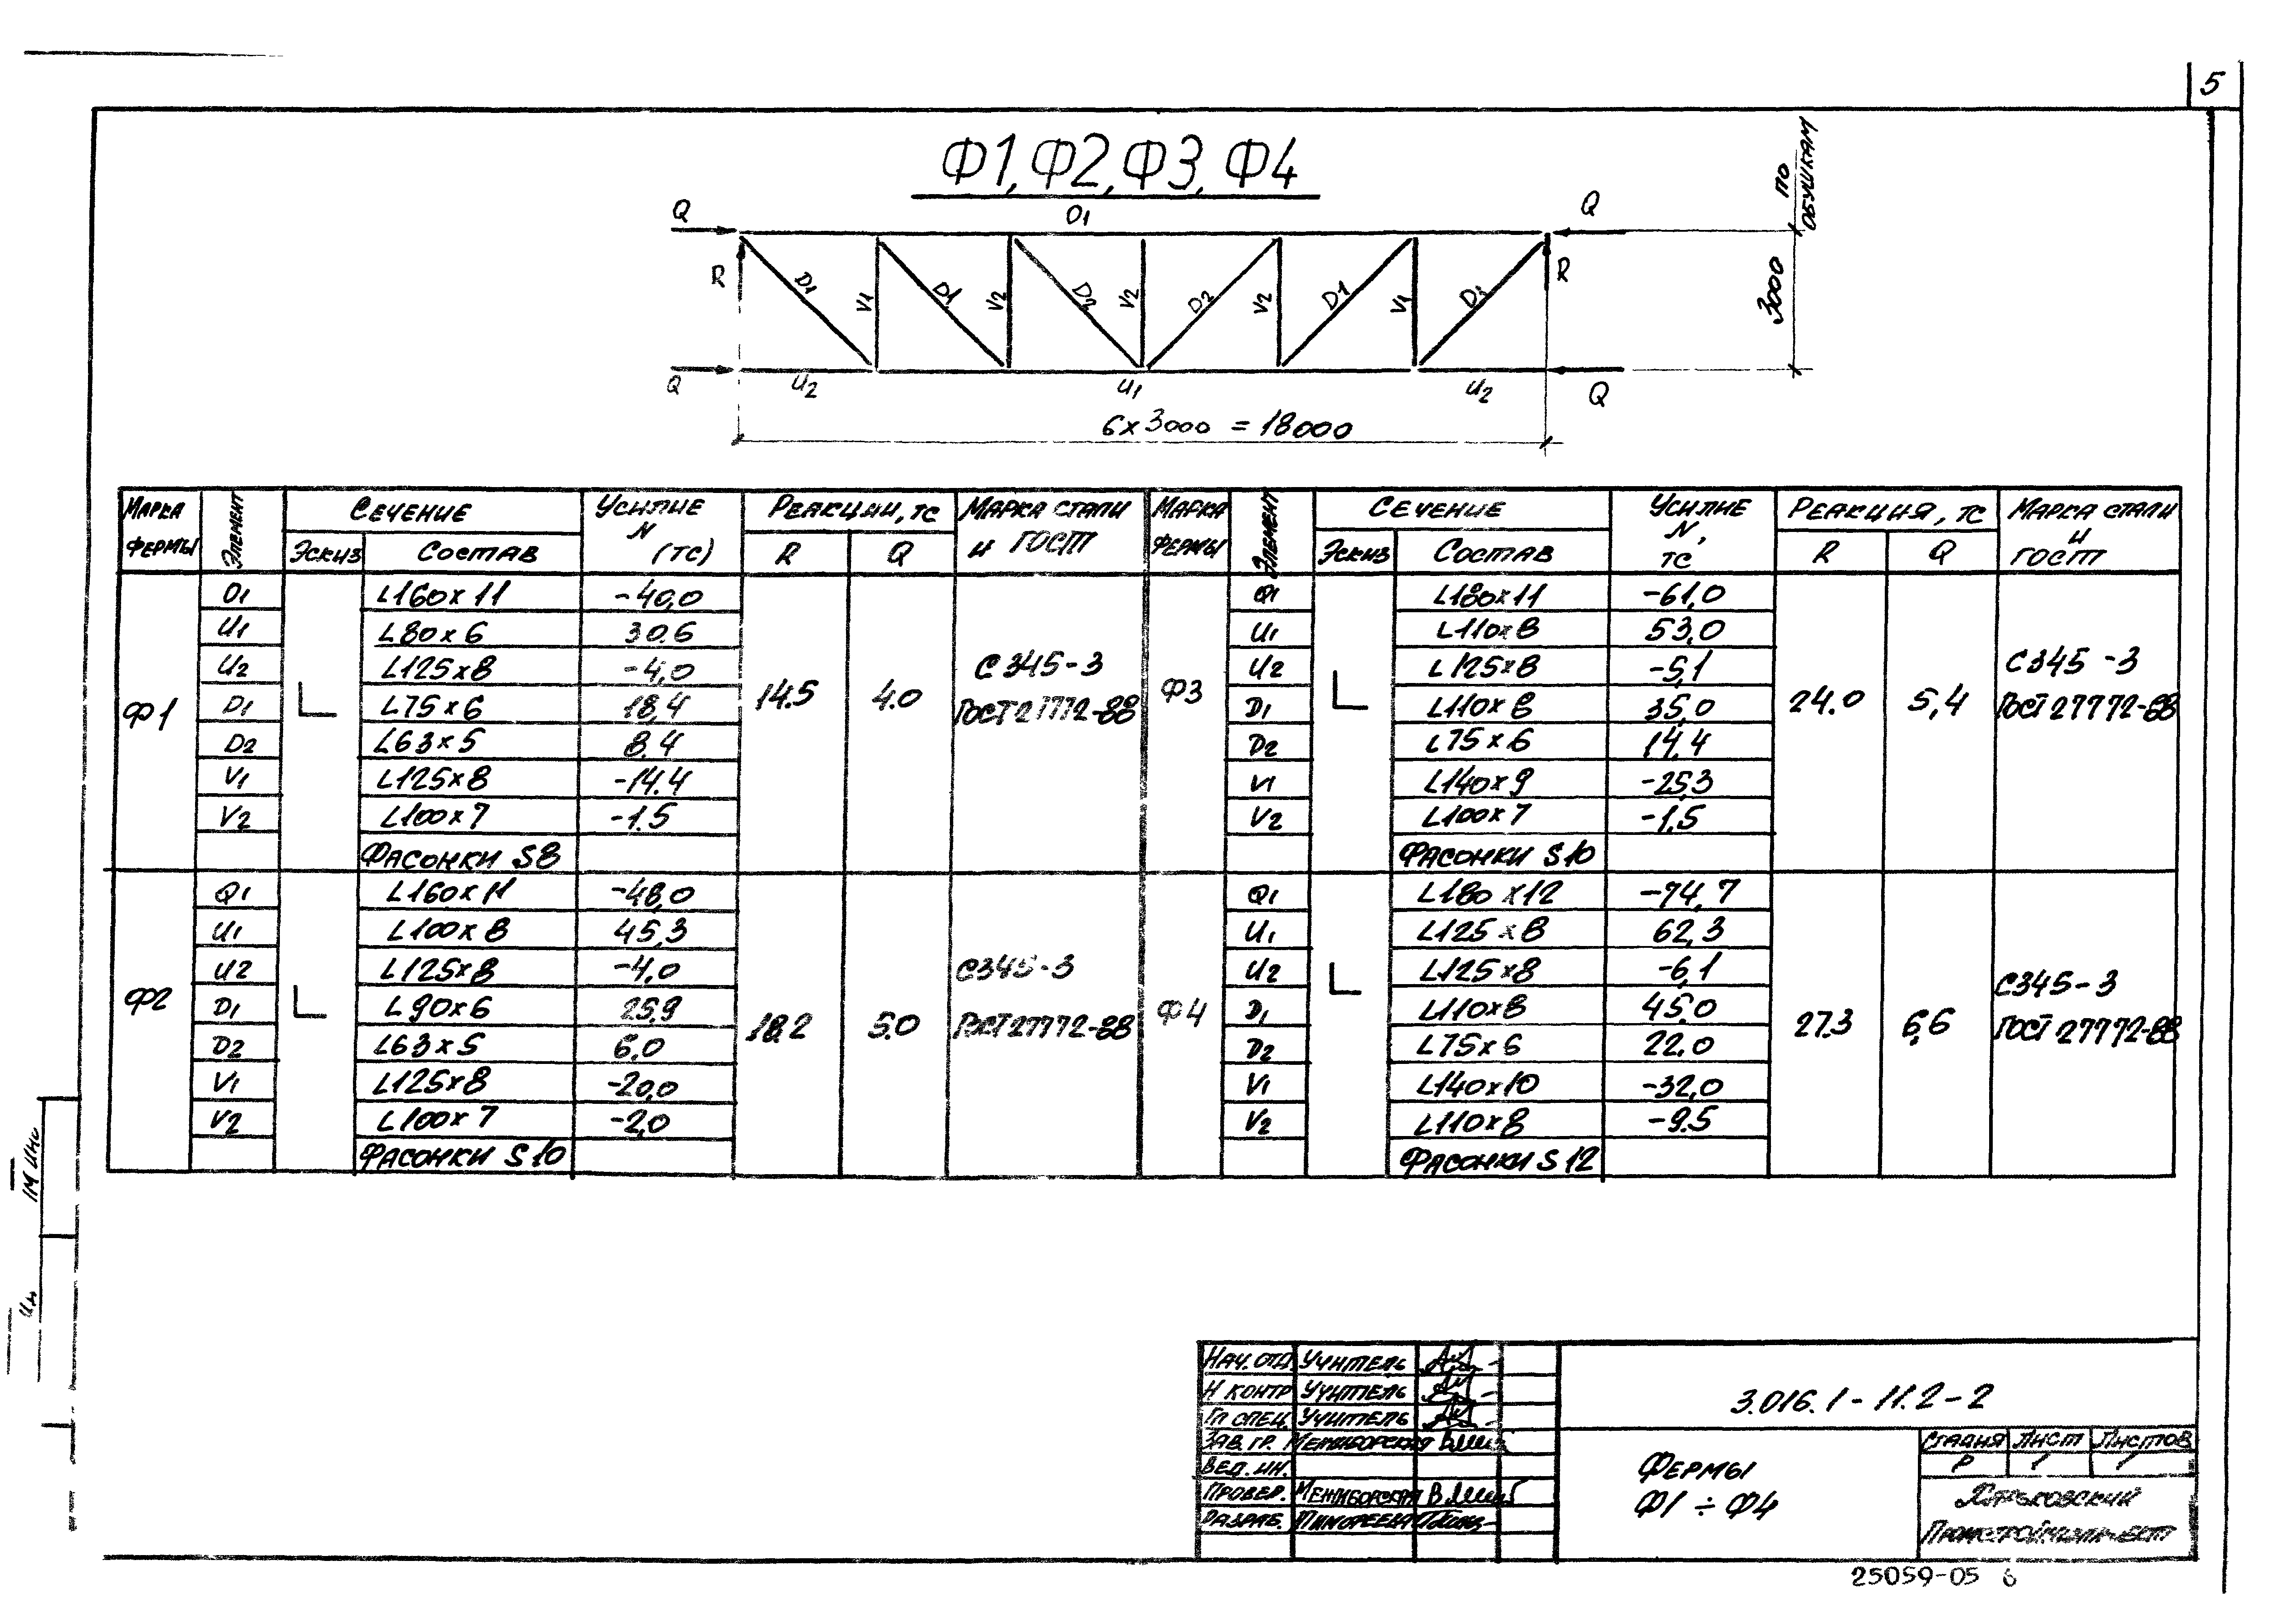 5
Ф1, Ф2, Ф3, Ф4
Q O1 Q
R D1 V1 D1 V2 D2 V2 D2 V2 D1 V1 D1 R
Q U2 U1 U2 Q
6 x 3000 = 18000
3000
по обушкам
Марка фермы Элемент Сечение Усилие N (тс) Реакции, тс Марка стали и ГОСТ Марка фермы Элемент Сечение Усилие N, тс Реакция, тс Марка стали и ГОСТ
Эскиз Состав R Q Эскиз Состав R Q
Ф1
O1 L160x11 -40,0
U1 L80x6 30.6
U2 L125x8 -4,0
D1 L75x6 18,4
D2 L63x5 8,4
V1 L125x8 -14.4
V2 L100x7 -1.5
Фасонки S8
14.5 4.0
С345-3
ГОСТ 27772-88
Ф3
O1 L180x11 -61,0
U1 L110x8 53,0
U2 L125x8 -5,1
D1 L110x8 35,0
D2 L75x6 14,4
V1 L140x9 -25,3
V2 L100x7 -1,5
Фасонки S10
24.0 5,4
С345-3
ГОСТ 27772-88
Ф2
O1 L160x11 -48,0
U1 L100x8 45,3
U2 L125x8 -4,0
D1 L90x6 25,9
D2 L63x5 6,0
V1 L125x8 -20,0
V2 L100x7 -2,0
Фасонки S10
18.2 5.0
С345-3
ГОСТ 27772-88
Ф4
O1 L180x12 -74,7
U1 L125x8 62,3
U2 L125x8 -6,1
D1 L110x8 45,0
D2 L75x6 22,0
V1 L140x10 -32,0
V2 L110x8 -9.5
Фасонки S12
27.3 6,6
С345-3
ГОСТ 27772-88
Нач. отд. Учитель
Н контр Учитель
Гл спец. Учитель
Зав. гр. Межиборская
Вед. ин.
Провер. Межиборская
Разраб.
3.016.1-11.2-2
Фермы
Ф1 ÷ Ф4
Стадия Лист Листов
Р 1 1
Харьковский
Промстройниипроект
25059-05 6